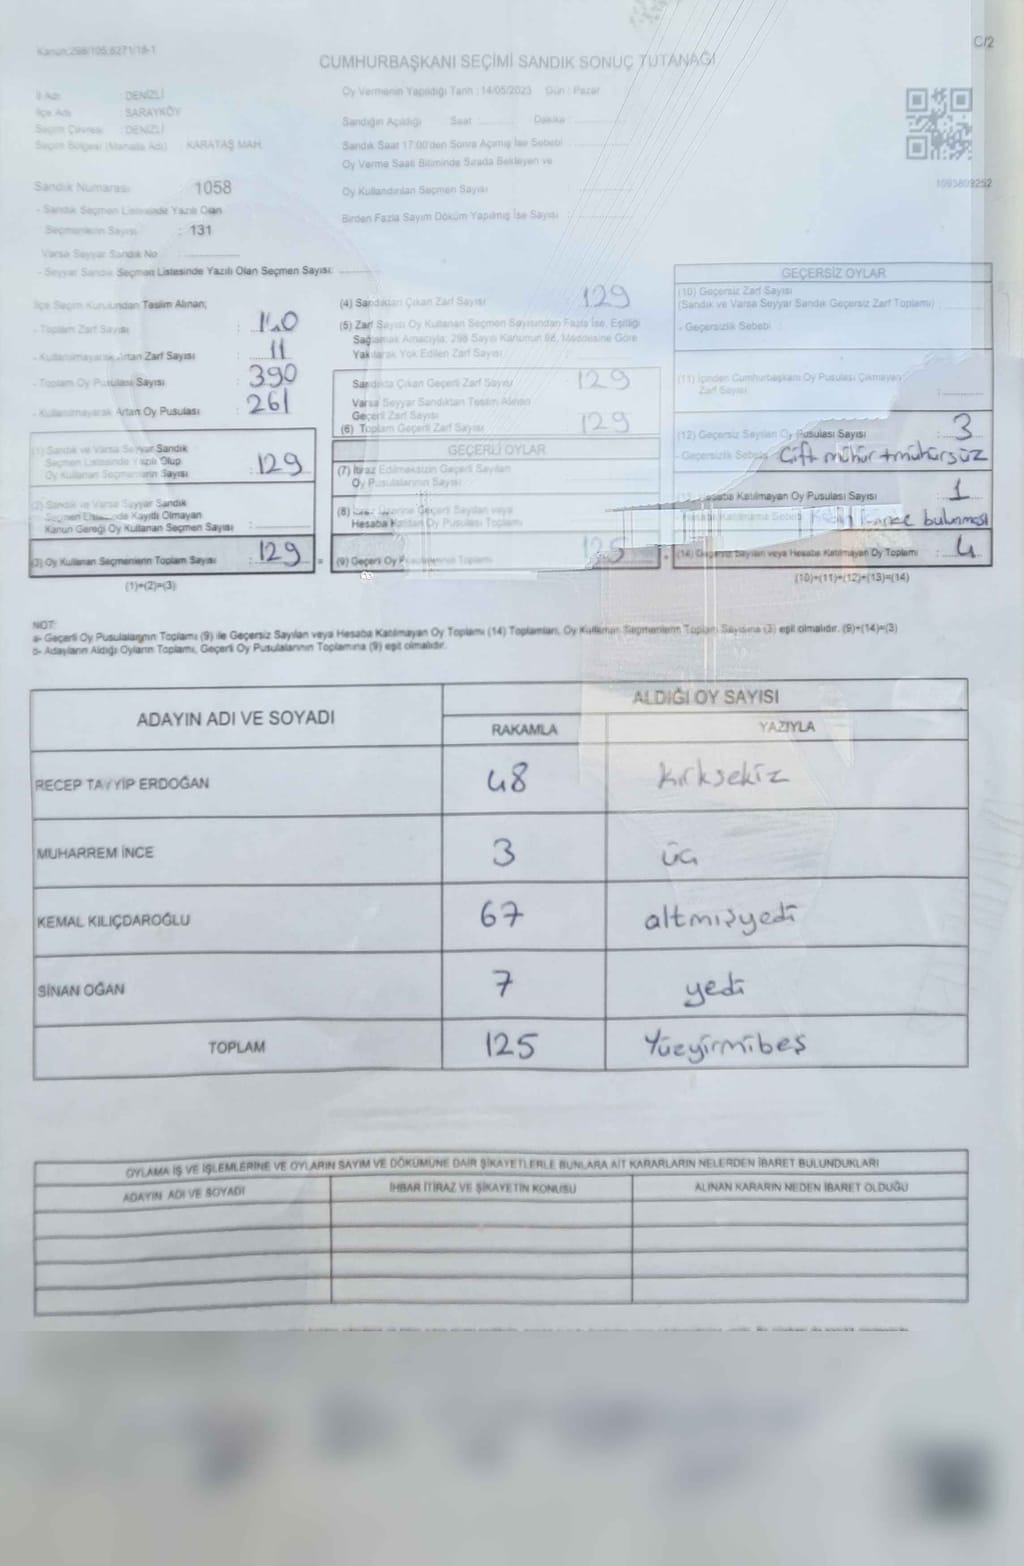 Kanun:298/105,6271/18-1
C/2
CUMHURBAŞKANI SEÇİMİ SANDIK SONUÇ TUTANAĞI
İl Adı : DENİZLİ
İlçe Adı : SARAYKÖY
Seçim Çevresi : DENİZLİ
Seçim Bölgesi (Mahalle Adı) : KARATAŞ MAH.
Oy Vermenin Yapıldığı Tarih : 14/05/2023 Gün : Pazar
Sandığın Açıldığı Saat Dakika :
Sandık Saat 17:00'den Sonra Açılmış İse Sebebi
Oy Verme Saati Bitiminde Sırada Bekleyen ve
Oy Kullandırılan Seçmen Sayısı
Birden Fazla Sayım Döküm Yapılmış İse Sayısı :
1093809252
Sandık Numarası 1058
- Sandık Seçmen Listesinde Yazılı Olan
Seçmenlerin Sayısı : 131
Varsa Seyyar Sandık No
- Seyyar Sandık Seçmen Listesinde Yazılı Olan Seçmen Sayısı:
İlçe Seçim Kurulundan Teslim Alınan;
- Toplam Zarf Sayısı : 140
- Kullanılmayarak Artan Zarf Sayısı : 11
- Toplam Oy Pusulası Sayısı : 390
- Kullanılmayarak Artan Oy Pusulası : 261
(1) Sandık ve Varsa Seyyar Sandık
Seçmen Listesinde Yazılı Olup
Oy Kullanan Seçmenlerin Sayısı : 129
(2) Sandık ve Varsa Seyyar Sandık
Seçmen Kayıtlı Olmayan
Kanun Gereği Oy Kullanan Seçmen Sayısı :
(3) Oy Kullanan Seçmenlerin Toplam Sayısı : 129
(1)+(2)=(3)
(4) Sandıktan Çıkan Zarf Sayısı 129
(5) Zarf Sayısı Oy Kullanan Seçmen Sayısından Fazla İse, Eşitliği
Sağlamak Amacıyla; 298 Sayılı Kanunun 98. Maddesine Göre
Yakılarak Yok Edilen Zarf Sayısı
Sandıkta Çıkan Geçerli Zarf Sayısı 129
Varsa Seyyar Sandıktan Teslim Alınan
Geçerli Zarf Sayısı
(6) Toplam Geçerli Zarf Sayısı 129
GEÇERLİ OYLAR
(7) İtiraz Edilmeksizin Geçerli Sayılan
Oy Pusulalarının Sayısı
(8) İtiraz Üzerine Geçerli Sayılan veya
Hesaba Katılan Oy Pusulası Toplamı
(9) Geçerli Oy Toplamı 125
GEÇERSİZ OYLAR
(10) Geçersiz Zarf Sayısı
(Sandık ve Varsa Seyyar Sandık Geçersiz Zarf Toplamı)
- Geçersizlik Sebebi :
(11) İçinden Cumhurbaşkanı Oy Pusulası Çıkmayan
Zarf Sayısı
(12) Geçersiz Sayılan Oy Pusulası Sayısı : 3
- Geçersizlik Sebebi Çift mühür + mühürsüz
(13) Hesaba Katılmayan Oy Pusulası Sayısı : 1
Hesaba Katılmama Sebebi bulunması
(14) Geçersiz Sayılan veya Hesaba Katılmayan Oy Toplamı : 4
(10)+(11)+(12)+(13)=(14)
NOT:
a- Geçerli Oy Pusulalarının Toplamı (9) ile Geçersiz Sayılan veya Hesaba Katılmayan Oy Toplamı (14) Toplamları, Oy Kullanan Seçmenlerin Toplam Sayısına (3) eşit olmalıdır. (9)+(14)=(3)
b- Adayların Aldığı Oyların Toplamı, Geçerli Oy Pusulalarının Toplamına (9) eşit olmalıdır.
ADAYIN ADI VE SOYADI
ALDIĞI OY SAYISI
RAKAMLA YAZIYLA
RECEP TAYYİP ERDOĞAN 48 kırksekiz
MUHARREM İNCE 3 üç
KEMAL KILIÇDAROĞLU 67 altmışyedi
SİNAN OĞAN 7 yedi
TOPLAM 125 Yüzyirmibeş
OYLAMA İŞ VE İŞLEMLERİNE VE OYLARIN SAYIM VE DÖKÜMÜNE DAİR ŞİKAYETLERLE BUNLARA AİT KARARLARIN NELERDEN İBARET BULUNDUKLARI
ADAYIN ADI VE SOYADI İHBAR İTİRAZ VE ŞİKAYETİN KONUSU ALINAN KARARIN NEDEN İBARET OLDUĞU